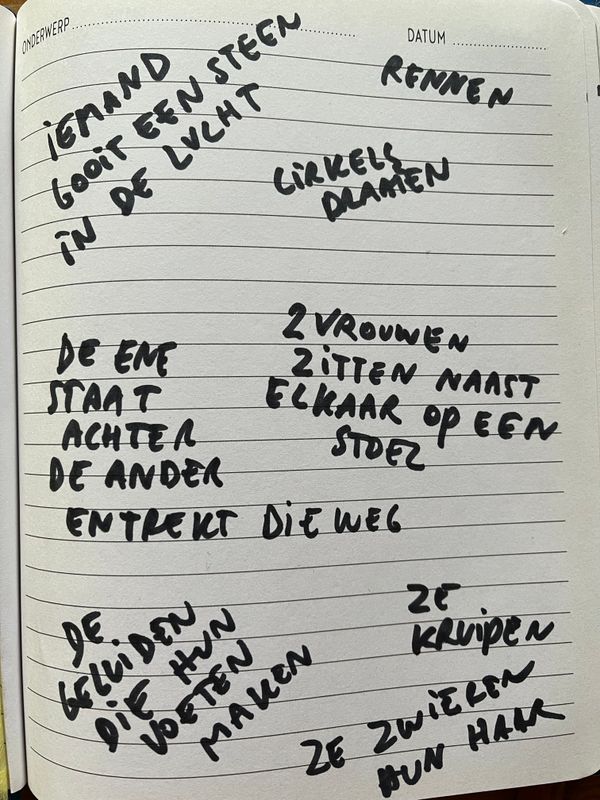 ONDERWERP
DATUM
iEMAND
GOOiT EEN STEEN
iN DE LUCHT
RENNEN
CiRKELS
DRAAiEN
DE ENE
STAAT
ACHTER
DE ANDER
EN TREKT DiE WEG
2 VROUWEN
ZiTTEN NAAST
ELKAAR OP EEN
STOEL
DE
GELUiDEN
DiE HUN
VOETEN
MAKEN
ZE
KRUiPEN
ZE ZWiEREN
HUN HAAR